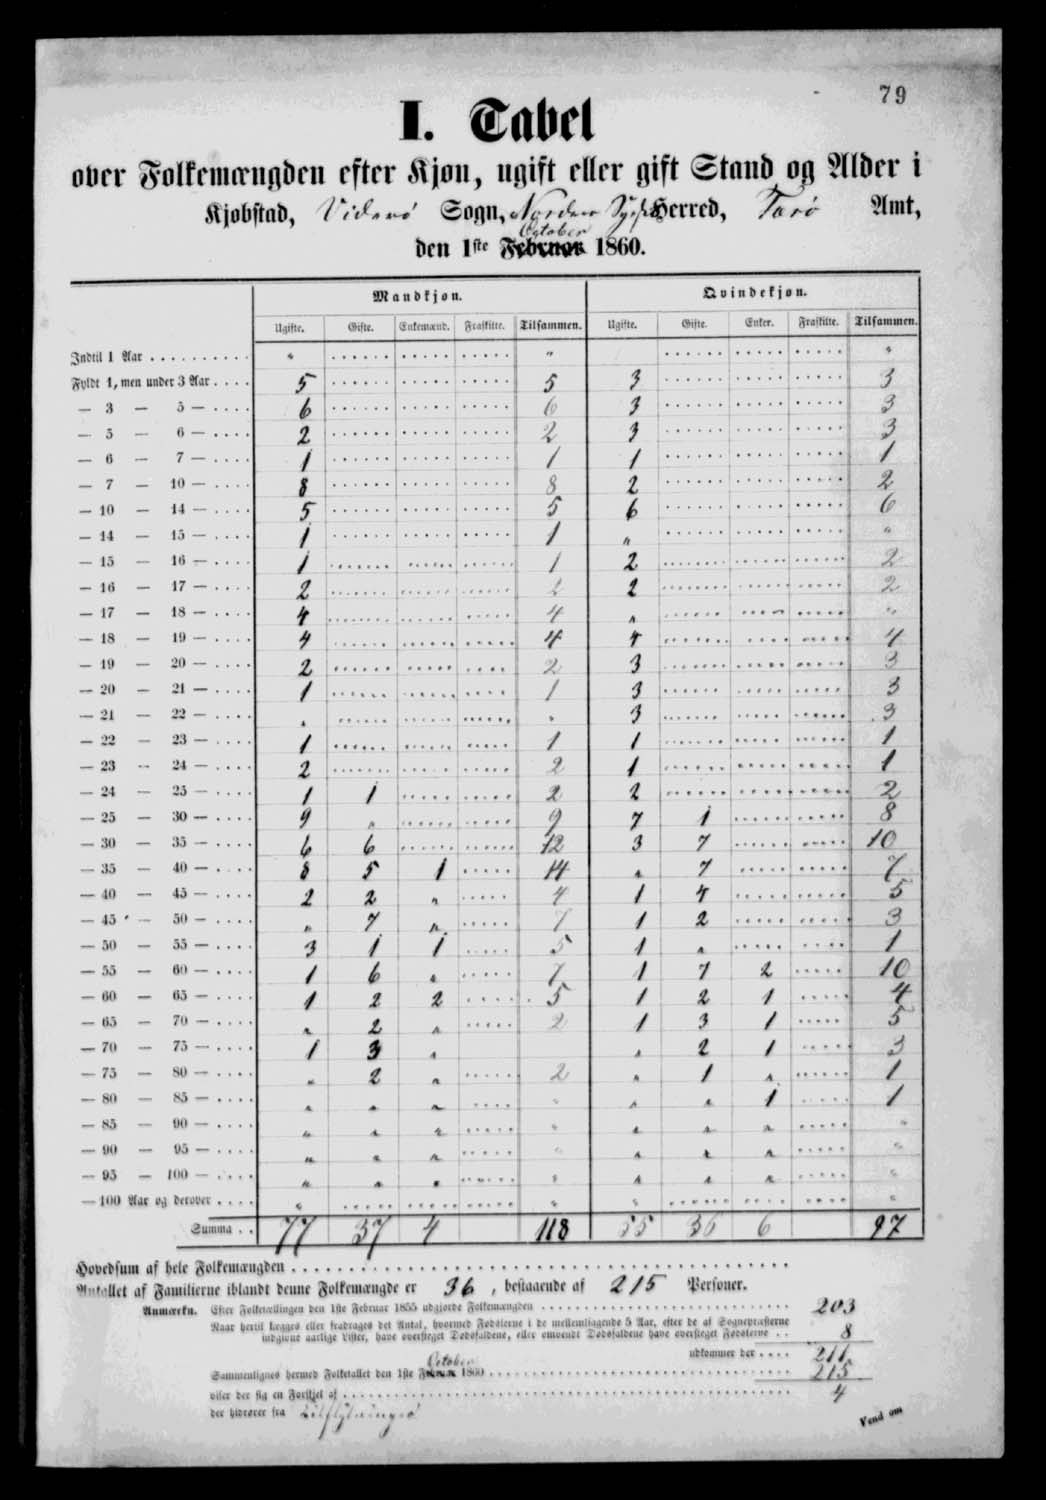 79
I. Tabel
over Folkemængden efter Kjøn, ugift eller gift Stand og Alder i
Kjøbstad, Viderø Sogn, Norderø Syssel Herred, Færø Amt,
October
den 1ste Februar 1860.
Mandkjøn. Qvindekjøn.
Ugifte. Gifte. Enkemænd. Fraskilte. Tilsammen. Ugifte. Gifte. Enker. Fraskilte. Tilsammen.
Indtil 1 Aar . . . . . . . . . . . " " "
Fyldt 1, men under 3 Aar . . . . 5 5 3 3
— 3 — 5 — . . . . 6 6 3 3
— 5 — 6 — . . . . 2 2 3 3
— 6 — 7 — . . . . 1 1 1 1
— 7 — 10 — . . . . 8 8 2 2
— 10 — 14 — . . . . 5 5 6 6
— 14 — 15 — . . . . 1 1 " "
— 15 — 16 — . . . . 1 1 2 2
— 16 — 17 — . . . . 2 2 2 2
— 17 — 18 — . . . . 4 4 " "
— 18 — 19 — . . . . 4 4 4 4
— 19 — 20 — . . . . 2 2 3 3
— 20 — 21 — . . . . 1 1 3 3
— 21 — 22 — . . . . " " 3 3
— 22 — 23 — . . . . 1 1 1 1
— 23 — 24 — . . . . 2 2 1 1
— 24 — 25 — . . . . 1 1 2 2 2
— 25 — 30 — . . . . 9 " 9 7 1 8
— 30 — 35 — . . . . 6 6 12 3 7 10
— 35 — 40 — . . . . 8 5 1 14 " 7 7
— 40 — 45 — . . . . 2 2 " 4 1 4 5
— 45 — 50 — . . . . " 7 " 7 1 2 3
— 50 — 55 — . . . . 3 1 1 5 1 " 1
— 55 — 60 — . . . . 1 6 " 7 1 7 2 10
— 60 — 65 — . . . . 1 2 2 5 1 2 1 4
— 65 — 70 — . . . . " 2 " 2 1 3 1 5
— 70 — 75 — . . . . 1 3 " " 2 1 3
— 75 — 80 — . . . . " 2 " 2 " 1 " 1
— 80 — 85 — . . . . " " " " " " 1 1
— 85 — 90 — . . . . " " " " " " " "
— 90 — 95 — . . . . " " " " " " " "
— 95 — 100 — . . . . " " " " " " " "
— 100 Aar og derover . . . . " " " "
Summa . . 77 37 4 118 55 36 6 97
Hovedsum af hele Folkemængden
Antallet af Familierne iblandt denne Folkemængde er 36, bestaaende af 215 Personer.
Anmærkn. Efter Folketællingen den 1ste Februar 1855 udgjorde Folkemængden 203
Naar hertil lægges eller fradrages det Antal, hvormed Fødslerne i de mellemliggende 5 Aar, efter de af Sognepræsterne
indgivne aarlige Lister, have oversteget Dødsfaldene, eller omvendt Dødsfaldene have oversteget Fødslerne . . 8
udkommer der . . . . 211
October
Sammenlignes hermed Folketallet den 1ste Februar 1860 215
viser der sig en Forskjel af 4
der hidrører fra
Vend om